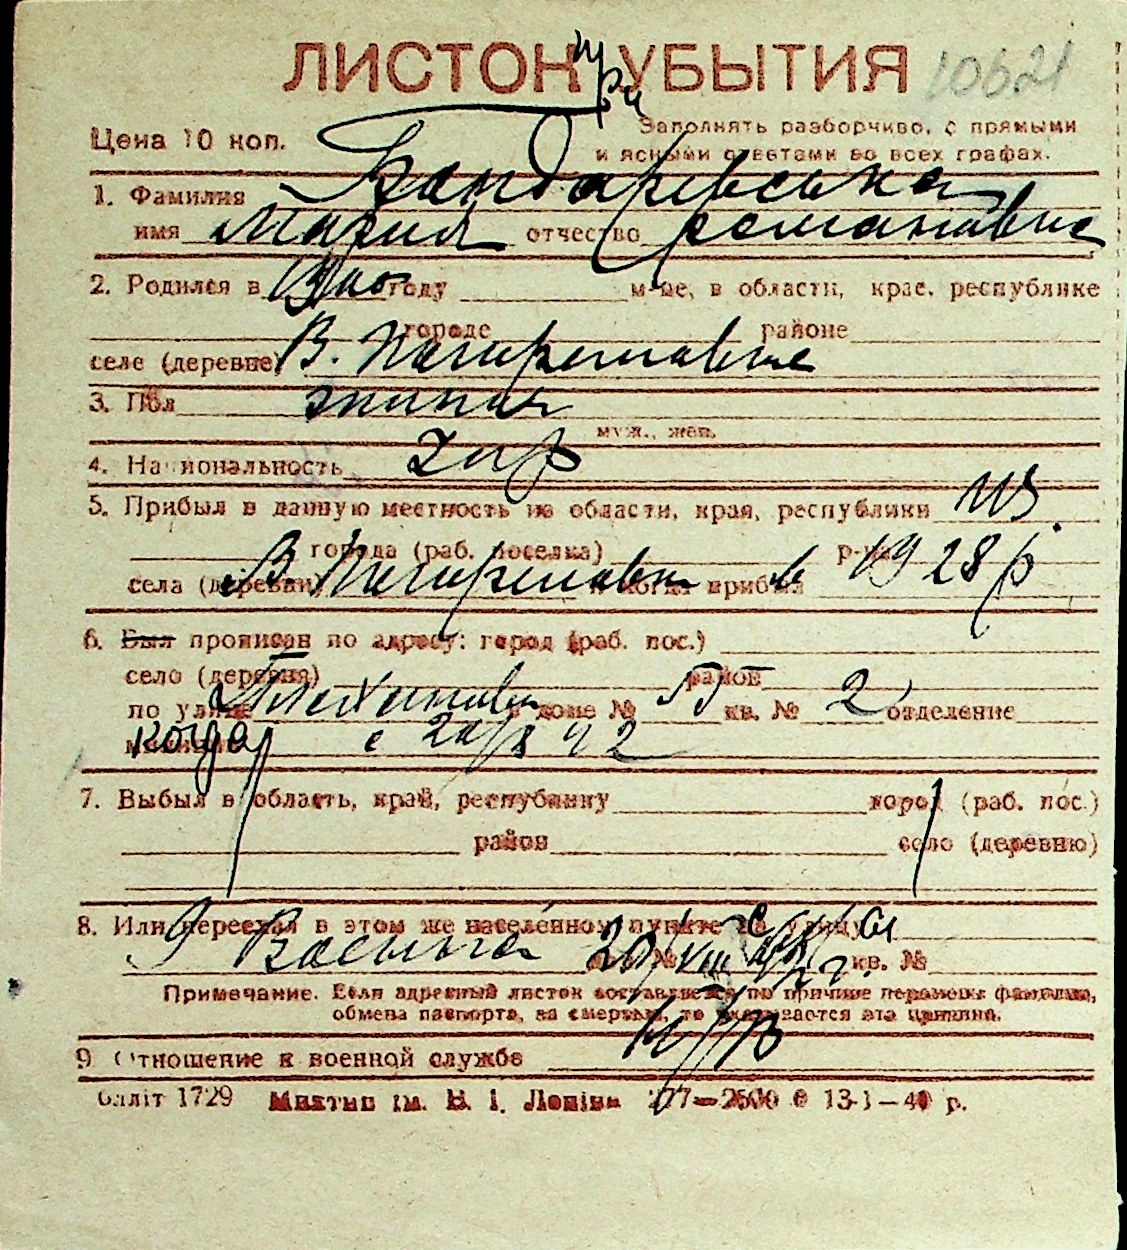 ЛИСТОК при УБЫТИЯ 10621
Цена 10 коп.
Заполнять разборчиво, с прямыми
и ясными ответами во всех графах.
1. Фамилия Бандаревська
имя Мария отчество романовна
2. Родился в году м-це, в области, крае, республике
городе районе
селе (деревне) В.
3. Пол
муж., жен.
4. Национальность укр
5. Прибыл в данную местность из области, края, республики из
города (раб. поселка) р-на
села (деревни) В. и когда прибыл в 1928 р
6. Был прописан по адресу: город (раб. пос.)
село (деревня) район
по улице в доме № кв. № 2 отделение
милиции когда с 42
7. Выбыл в область, край, республику город (раб. пос.)
район село (деревню)
8. Или переехал в этом же населенном пункте на улицу
дом № кв. №
Примечание. Если адресный листок составляется по причине перемены фамилии,
обмена паспорта, за смертью, то указывается эта причина.
9 Отношение к военной службе
Облліт 1729 ім. В. І. Леніна 13-I—40 р.